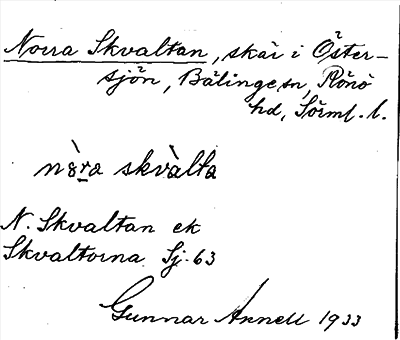 Norra Skvaltan, skär i Öster-
sjön, Bälinge sn, Rönö
hd, Sörml. l.
nò̀r̠a skvàlta
N. Skvaltan ek
Skvaltorna Sj. 63
Gunnar Annell 1933